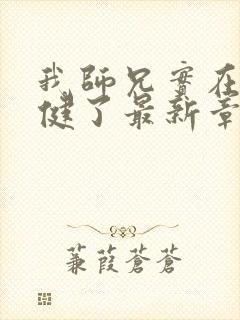 我師兄實在
健了最新章
蒹葭蒼蒼